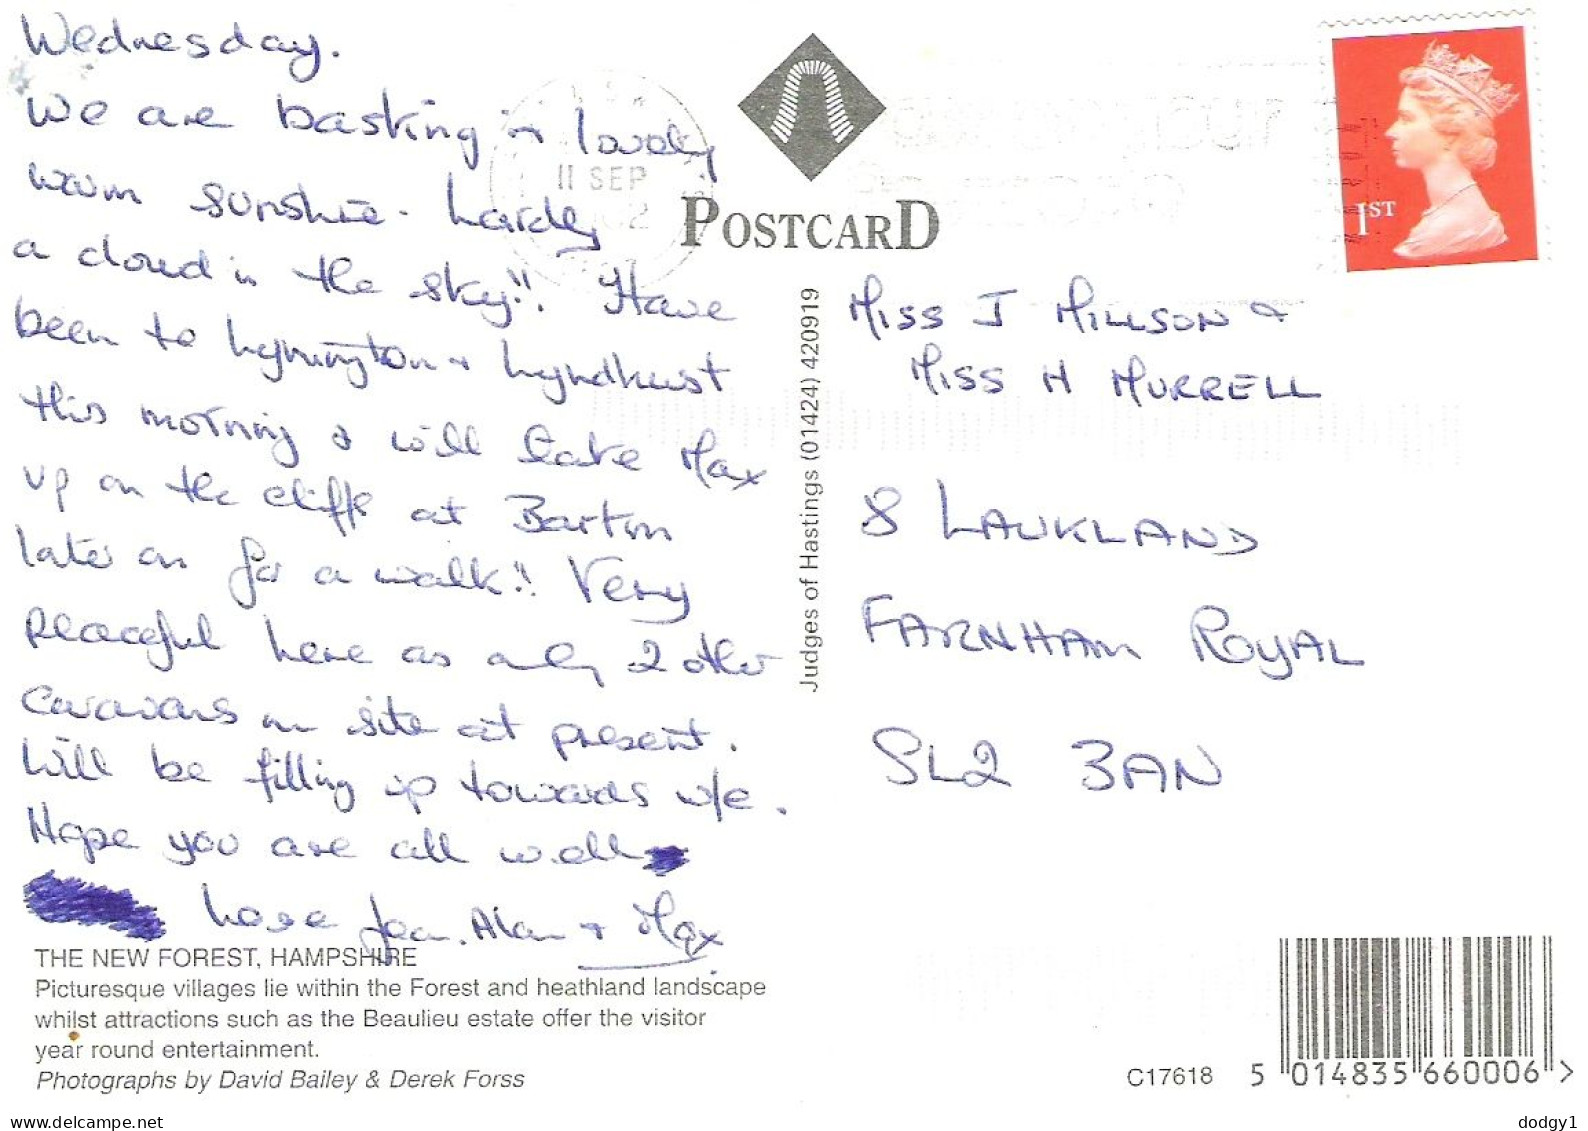 Wednesday.
We are basking in lovely
warm sunshine - hardly
a cloud in the sky!! Have
been to Lymington + Lyndhurst
this morning & will take Max
up on the cliffs at Barton
later on for a walk!! Very
peaceful here as only 2 other
caravans on site at present.
Will be filling up towards w/e.
Hope you are all well
Love Jean. Alan + Max
THE NEW FOREST, HAMPSHIRE
Picturesque villages lie within the Forest and heathland landscape
whilst attractions such as the Beaulieu estate offer the visitor
year round entertainment.
Photographs by David Bailey & Derek Forss
11 SEP
POSTCARD
Judges of Hastings (01424) 420919
1ST
MISS J MILLSON &
MISS H MURRELL
8 LAUKLAND
FARNHAM ROYAL
SL2 3AN
C17618
5 014835 660006 >
www.delcampe.net
dodgy1